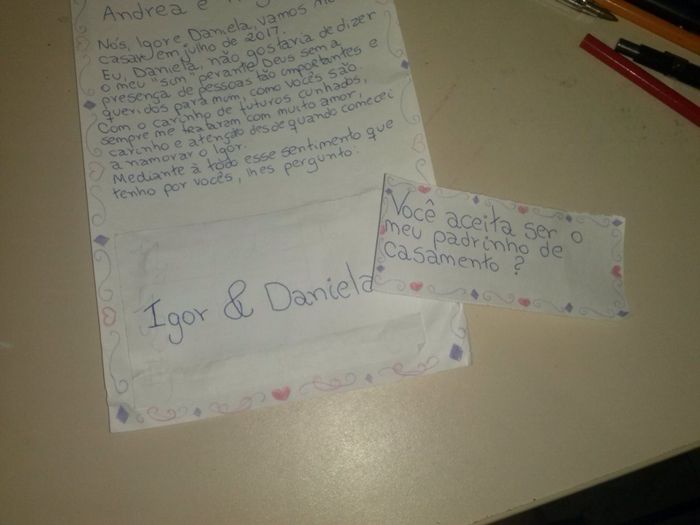 Andrea e
Nós, Igor e Daniela, vamos nos
casar em julho de 2017.
Eu, Daniela, não gostaria de dizer
o meu "sim" perante Deus sem a
presença de pessoas tão importantes e
queridos para mim, como vocês são.
Com o carinho de futuros cunhados,
sempre me trataram com muito amor,
carinho e atenção desde quando comecei
a namorar o Igor.
Mediante à todo esse sentimento que
tenho por vocês, lhes pergunto:
Igor & Daniela
Você aceita ser o
meu padrinho de
casamento?